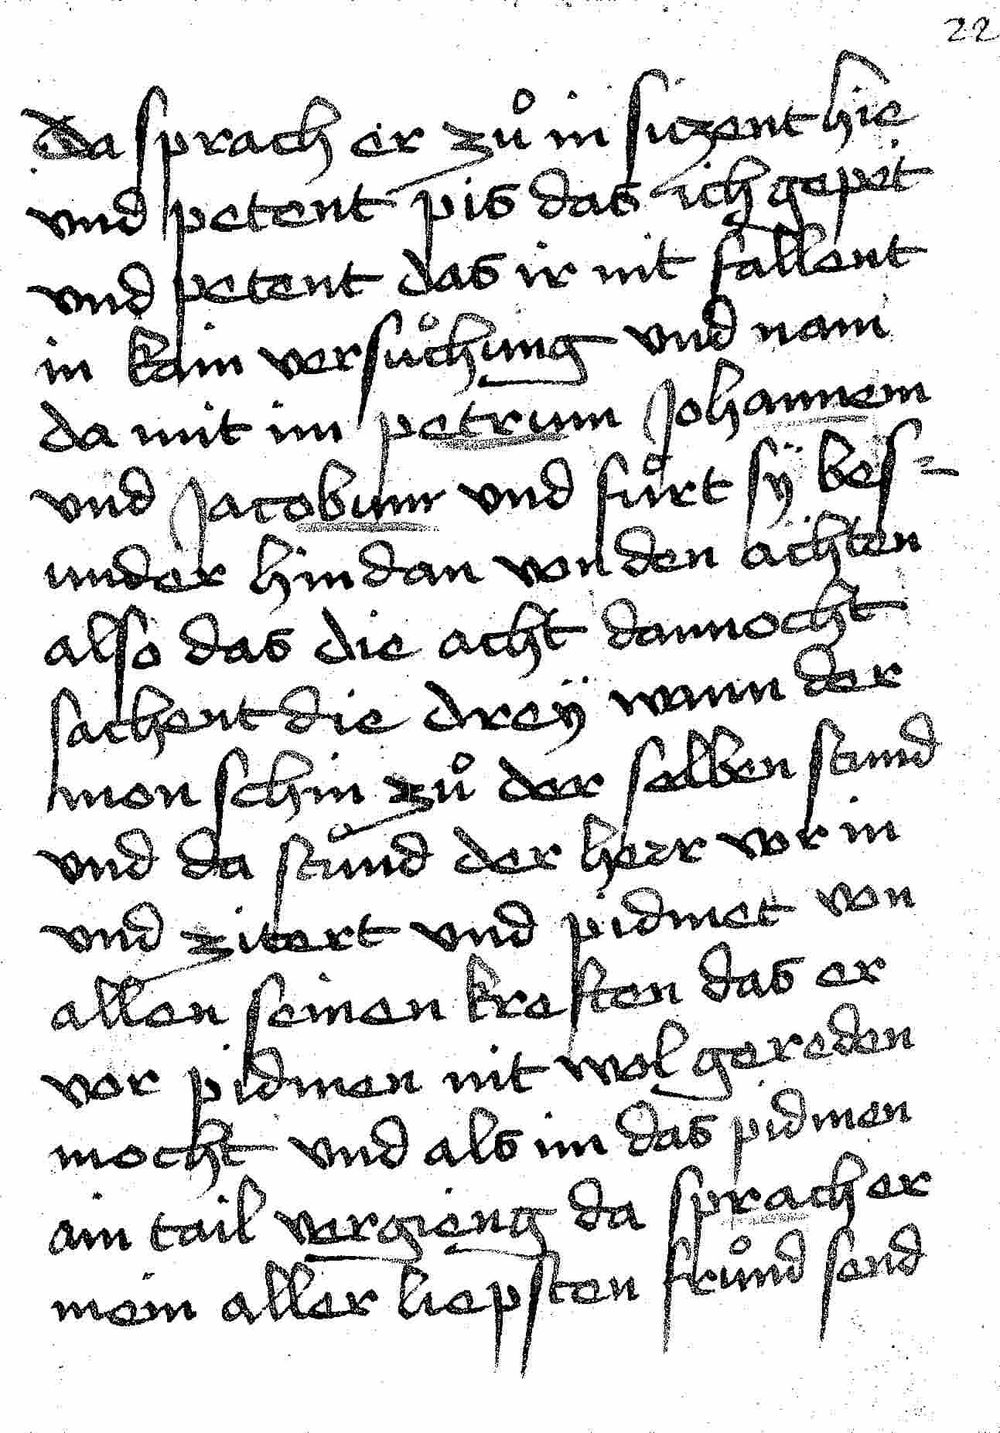 22
da sprach er zů in siczent hie
vnd petent pis das ich gepet
vnd petent das ir nit fallent
in kain versůchung vnd nam
da mit im petrum Johannem
vnd Jacobum vnd fůrt sÿ bes=
under hindan von den ächten
also das die acht dannocht
sachent die dreÿ wann der
mon schin zů der selben stund
vnd da stůnd der herr vor in
vnd zitert vnd pidmet von
allen seinen kreften das er
vor pidmen nit wol gereden
mocht vnd als im das pidmen
ain tail vergieng da sprach er
mein aller liepsten frůnd send